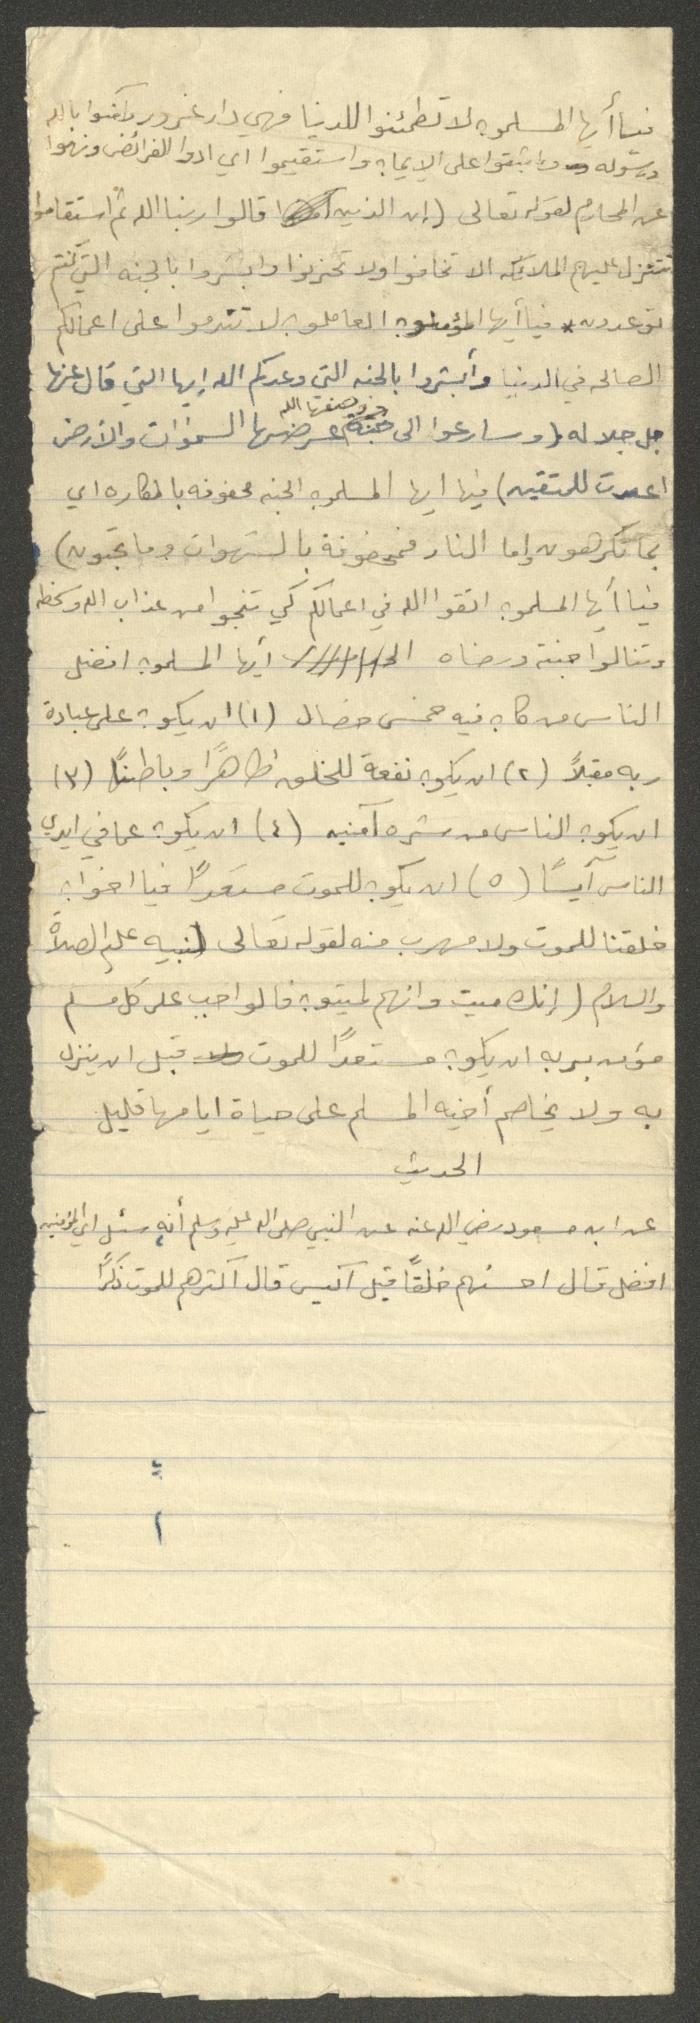 فيا أيها المسلمون لا تطمئنوا للدنيا فهي دار غرور وآمنوا بالله
ورسوله واثبتوا على الايمان واستقيموا اي ادوا الفرائض ونهوا
عن المحارم لقوله تعالى (إن الذين قالوا ربنا الله ثم استقاموا
تتنزل عليهم الملائكه الا تخافوا ولا تحزنوا وابشروا بالجنه التي كنتم
توعدون * فيا أيها المؤمنون العاملون لا تندموا على اعمالكم
الصالحه في الدنيا وأبشروا بالجنه التي وعدكم الله إيها التي قال عنها
جل جلاله (وسارعوا الى جنة عرضها السموات والأرض
وصفها الله
اعدت للمتقين) فيا ايها المسلمون الجنه محفوفه بالمكاره اي
بما تكرهون واما النار فمحفوفة بالشهوات وما تحبون)
فيا أيها المسلمون اتقوا الله في اعمالكم كي تنجوا من عذاب الله وسخطه
وتنالوا جنته ورضاه أيها المسلمون افضل
الناس من كان فيه خمس خصال (١) ان يكون على عبادة
ربه مقبلاً (٢) ان يكون نفعة للخلق ظاهرًا وباطنًا (٣)
ان يكون الناس من شره آمنين (٤) ان يكون عما في ايدي
الناس آيسًا (٥) ان يكون للموت مستعدًا فيا اخوان
خلقنا للموت ولا مهرب منه لقوله تعالى لنبيه عليه الصلاة
والسلام (إنك ميت وانهم لميتون فالواجب على كل مسلم
مؤمن بربه ان يكون مستعدًا للموت قبل ان ينزل
به ولا يخاصم أخيه المسلم على حياة ايامها قليل
الحديث
عن ابن مسعود رضي الله عنه عن النبي صلى الله عليه وسلم أنه سئل اي المؤمنين
افضل قال احسنهم خلقًا قيل اكيس قال اكثرهم للموت ذكرًا